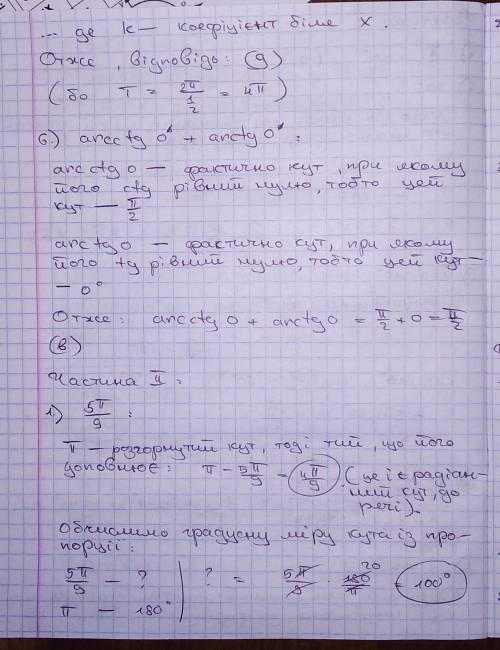 ... де k — коефіцієнт біля x.
Отже, відповідь: (g)
(бо T = 2π / 1/2 = 4π)
6.) arcctg 0 + arctg 0 :
arcctg 0 — фактично кут, при якому
його ctg рівний нулю, тобто цей
кут — π/2
arctg 0 — фактично кут, при якому
його tg рівний нулю, тобто цей кут —
— 0°
Отже: arcctg 0 + arctg 0 = π/2 + 0 = π/2
(в)
Частина II :
1.) 5π/9 :
π — розгорнутий кут, тоді тий, що його
доповнює: π - 5π/9 = 4π/9 (це і є радіан-
ний кут, до
речі).
Обчислимо градусну міру кута із про-
порції:
5π/9 — ? | ? = 5π/9 · 180/π 20 = 100°
π — 180°